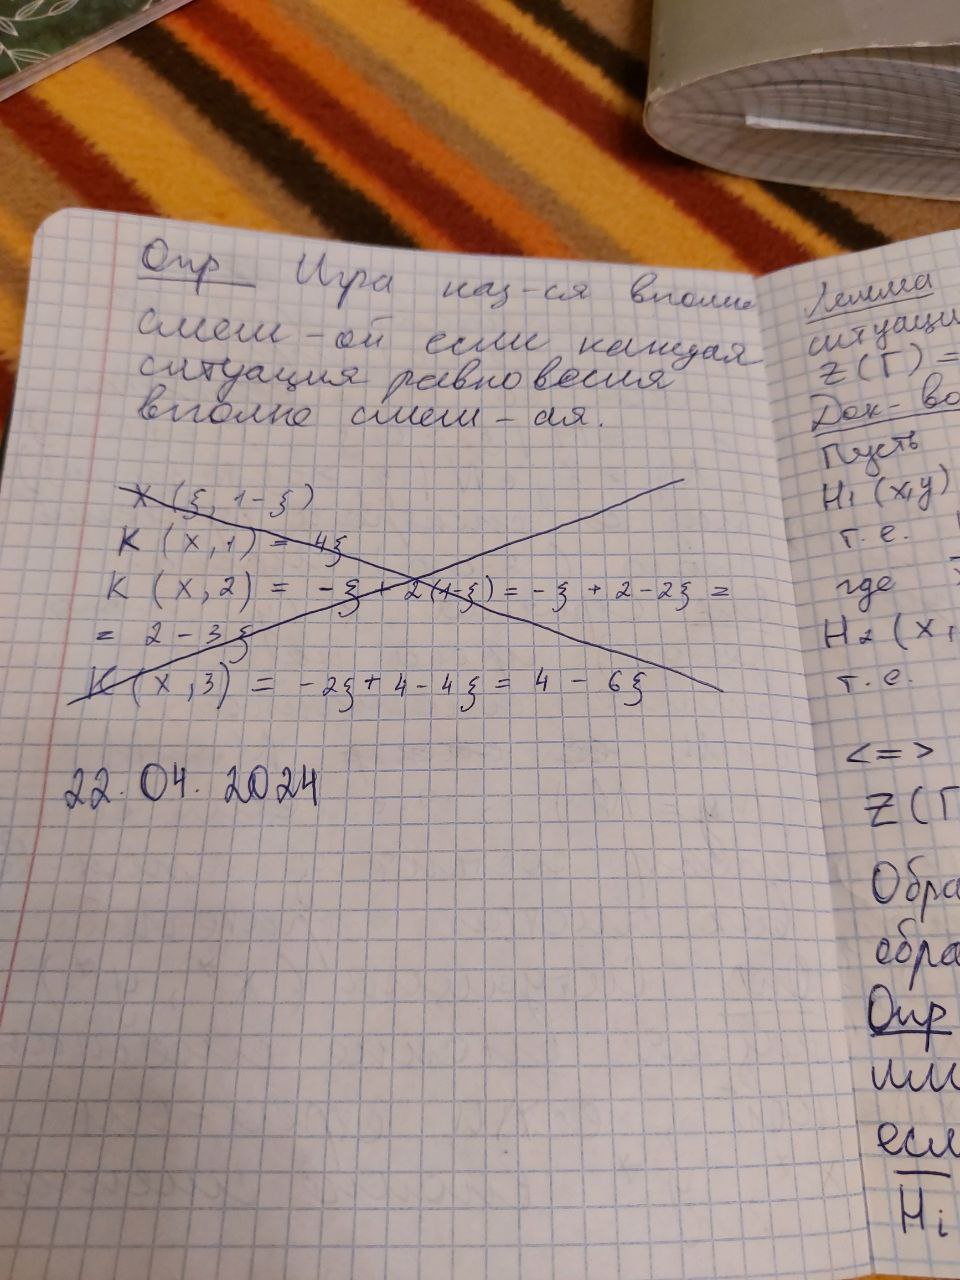 Опр Игра наз-ся вполне
смеш-ой если каждая
ситуация равновесия
вполне смеш-ая.
X (ξ, 1-ξ)
K (x, 1) = 4ξ
K (x, 2) = -ξ + 2(1-ξ) = -ξ + 2 - 2ξ =
= 2 - 3ξ
K (x, 3) = -2ξ + 4 - 4ξ = 4 - 6ξ
22. 04. 2024
Лемма
ситуаци
Z(Г) =
Док-во
Пусть
H₁ (x,y)
т.е.
где
H₂ (x,
т.е.
<=>
Z(Г
Обра
обра
Опр
или
есл
Hᵢ